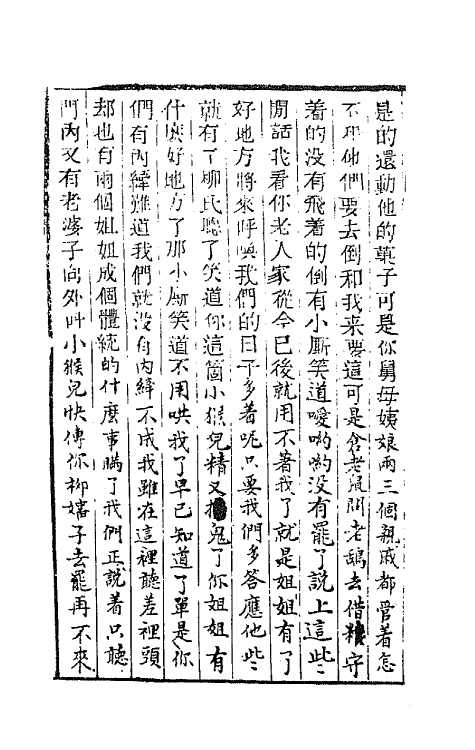 是的還動他的菓子可是你舅母姨娘兩三個親戚都管着怎
不和他們要去倒和我来要這可是倉老鼠問老鴰去借粮守
着的没有飛着的倒有小厮笑道噯喲喲没有罷了說上這些
閒話我看你老人家從今已後就用不著我了就是姐姐有了
好地方將來呼喚我們的日子多着呢只要我們多答應他些
就有了柳氏聽了笑道你這箇小猴兒精又搗鬼了你姐姐有
什麽好地方了那小厮笑道不用哄我了早已知道了單是你
們有内緯難道我們就没有内緯不成我雖在這裡聽差裡頭
却也有兩個姐姐成個體統的什麽事瞞了我們正說着只聽
門内又有老婆子向外叫小猴兒快傳你柳嬸子去罷再不來